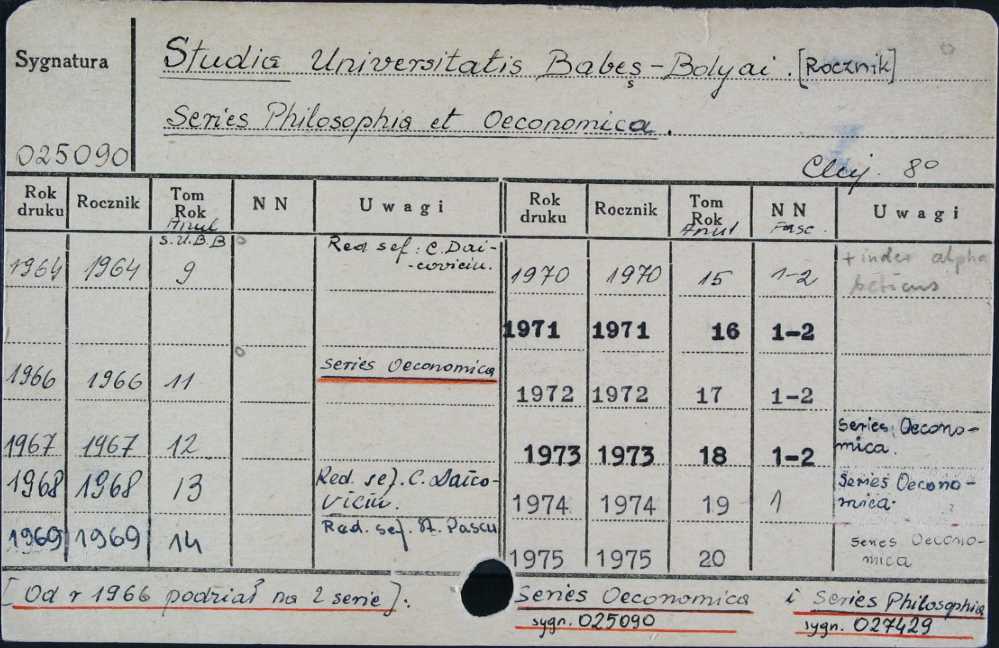 Sygnatura
Studia Universitatis Babeş-Bolyai. [Rocznik]
Series Philosophia et Oeconomica.
025090
Cluj. 8°
Rok druku Rocznik Tom Rok N N Uwagi Rok druku Rocznik Tom Rok N N Uwagi
Anul S.U.B.B Anul Fasc.
1964 1964 9 Red sef: C. Dai-
-coviciu.
1966 1966 11 Series Oeconomica
1967 1967 12
1968 1968 13 Red. sef. C. Daico-
viciu.
1969 1969 14 Red. sef. St. Pascu
1970 1970 15 1-2 + index alpha
beticus
1971 1971 16 1-2
1972 1972 17 1-2
1973 1973 18 1-2 Series Oecono-
mica.
1974 1974 19 1 Series Oecono-
mica.
1975 1975 20 Series Oecono-
mica
[Od r 1966 podział na 2 serie].
Series Oeconomica i Series Philosophia
sygn. 025090 sygn. 027429